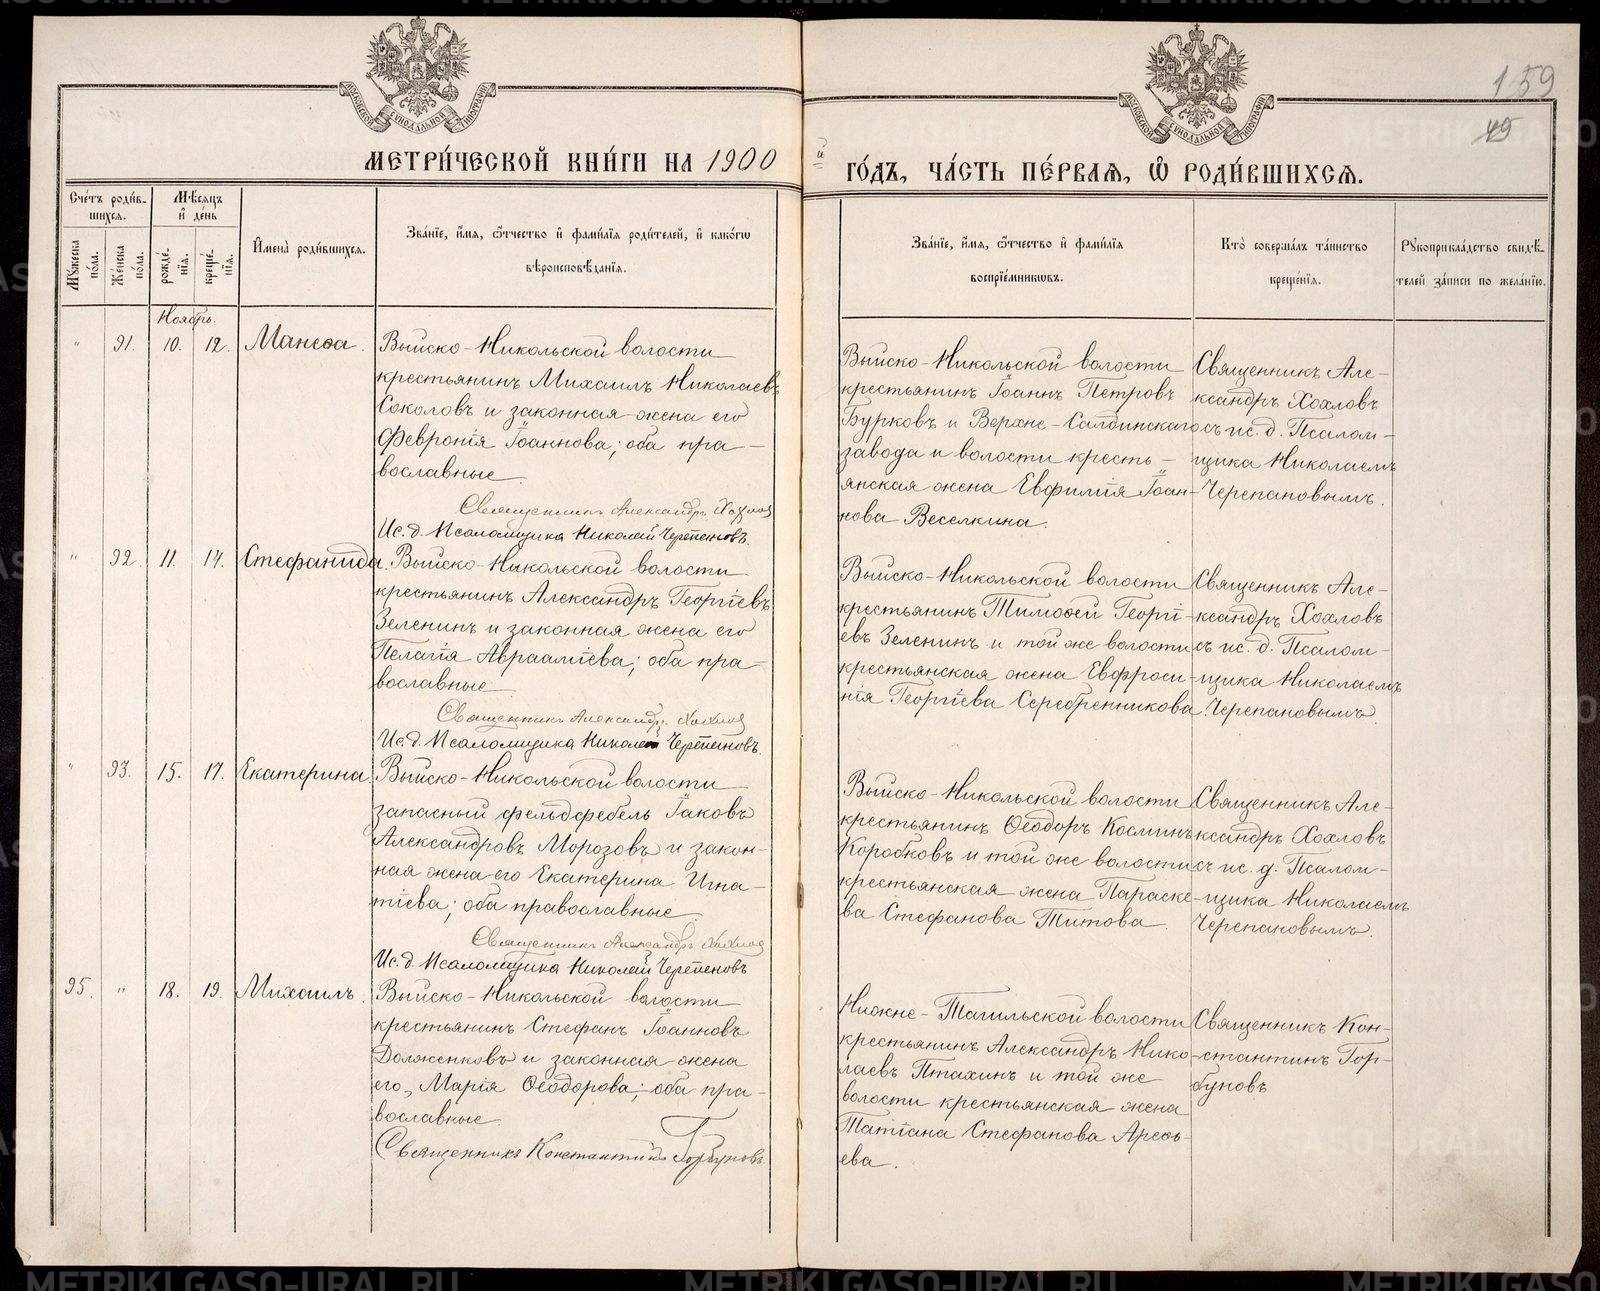 МОСКОВСКОЙ СѴНОДАЛЬНОЙ ТИПОГРАФІИ
МОСКОВСКОЙ СѴНОДАЛЬНОЙ ТИПОГРАФІИ
159
49
МЕТРИ́ЧЕСКОЙ КНИ́ГИ НА 1900 й ГО́ДЪ, ЧА́СТЬ ПЕ́РВАѦ, Ѡ РОДИ́ВШИХСѦ.
Сче́тъ роди́вшихся.
Мꙋжеска по́ла.
Же́нска по́ла.
Мѣ́сяцъ и де́нь
рожде́нїѧ.
креще́нїѧ.
И҆мена̀ роди́вшихся.
Зва́нїе, и҆́мѧ, ѻ҆́тчество и҆ фами́лїѧ роди́телей, и҆ како́гѡ
вѣроисповѣ́данїѧ.
Зва́нїе, и҆́мѧ, ѻ҆́тчество и҆ фами́лїѧ
воспрїе́мникѡвъ.
Кто̀ соверша́лъ та́инство
креще́нїѧ.
Рꙋкоприкла́дство свидѣ́-
телей за́писи по жела́нїю.
Ноябрь.
" 91. 10. 12. Манеѳа.
Выйско-Никольской волости
крестьянинъ Михаилъ Николаевъ
Соколовъ и законная жена его
Февронія Іоаннова; оба пра-
вославные.
Священникъ Александръ Хохлов
Ис. д. Псаломщика Николай Черепановъ.
Выйско-Никольской волости
крестьянинъ Іоаннъ Петровъ
Бурковъ и Верхне-Салдинскаго
завода и волости кресть-
янская жена Евфимія Іоан-
нова Веселкина.
Священникъ Але-
ксандръ Хохловъ
съ ис. д. Псалом-
щика Николаемъ
Черепановымъ.
" 92. 11. 14. Стефанида.
Выйско-Никольской волости
крестьянинъ Александръ Георгіевъ
Зеленинъ и законная жена его
Пелагія Аврааміева; оба пра-
вославные.
Священникъ Александръ Хохлов
Ис. д. Псаломщика Николай Черепановъ.
Выйско-Никольской волости
крестьянинъ Тимоѳей Георгі-
евъ Зеленинъ и той же волости
крестьянская жена Евфроси-
нія Георгіева Серебренникова.
Священникъ Але-
ксандръ Хохловъ
съ ис. д. Псалом-
щика Николаемъ
Черепановымъ.
" 93. 15. 17. Екатерина.
Выйско-Никольской волости
запасный фельдфебель Іаковъ
Александровъ Морозовъ и закон-
ная жена его Екатерина Игна-
тіева; оба православные.
Священникъ Александръ Хохлов
Ис. д. Псаломщика Николай Черепановъ
Выйско-Никольской волости
крестьянинъ Ѳеодоръ Косминъ
Коробковъ и той же волости
крестьянская жена Параске-
ва Стефанова Титова.
Священникъ Але-
ксандръ Хохловъ
съ ис. д. Псалом-
щика Николаемъ
Черепановымъ.
95. " 18. 19. Михаилъ.
Выйско-Никольской волости
крестьянинъ Стефанъ Іоанновъ
Долженковъ и законная жена
его, Марія Ѳеодорова; оба пра-
вославные.
Священникъ Константинъ Горбуновъ.
Нижне-Тагильской волости
крестьянинъ Александръ Нико-
лаевъ Птахинъ и той же
волости крестьянская жена
Татіана Стефанова Ареѳь-
ева.
Священникъ Кон-
стантинъ Гор-
буновъ
METRIKI.GASO-URAL.RU